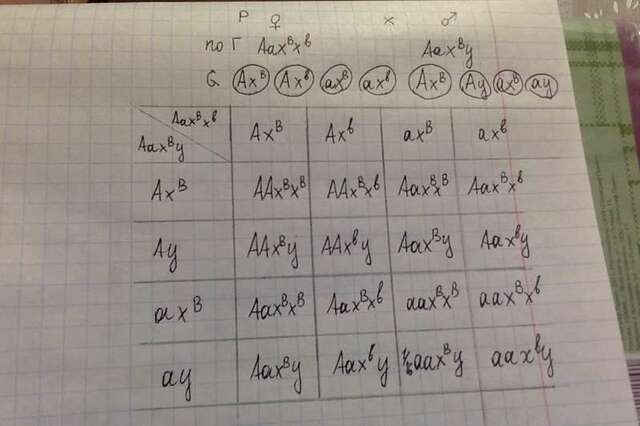 P ♀ x ♂
по Г Aaxᴮxᵇ Aaxᴮy
G Axᴮ Axᵇ axᴮ axᵇ Axᴮ Ay axᴮ ay
Aaxᴮxᵇ
Aaxᴮy
Axᴮ Axᵇ axᴮ axᵇ
Axᴮ AAxᴮxᴮ AAxᴮxᵇ Aaxᴮxᴮ Aaxᴮxᵇ
Ay AAxᴮy AAxᵇy Aaxᴮy Aaxᵇy
axᴮ Aaxᴮxᴮ Aaxᴮxᵇ aaxᴮxᴮ aaxᴮxᵇ
ay Aaxᴮy Aaxᵇy aaxᴮy aaxᵇy